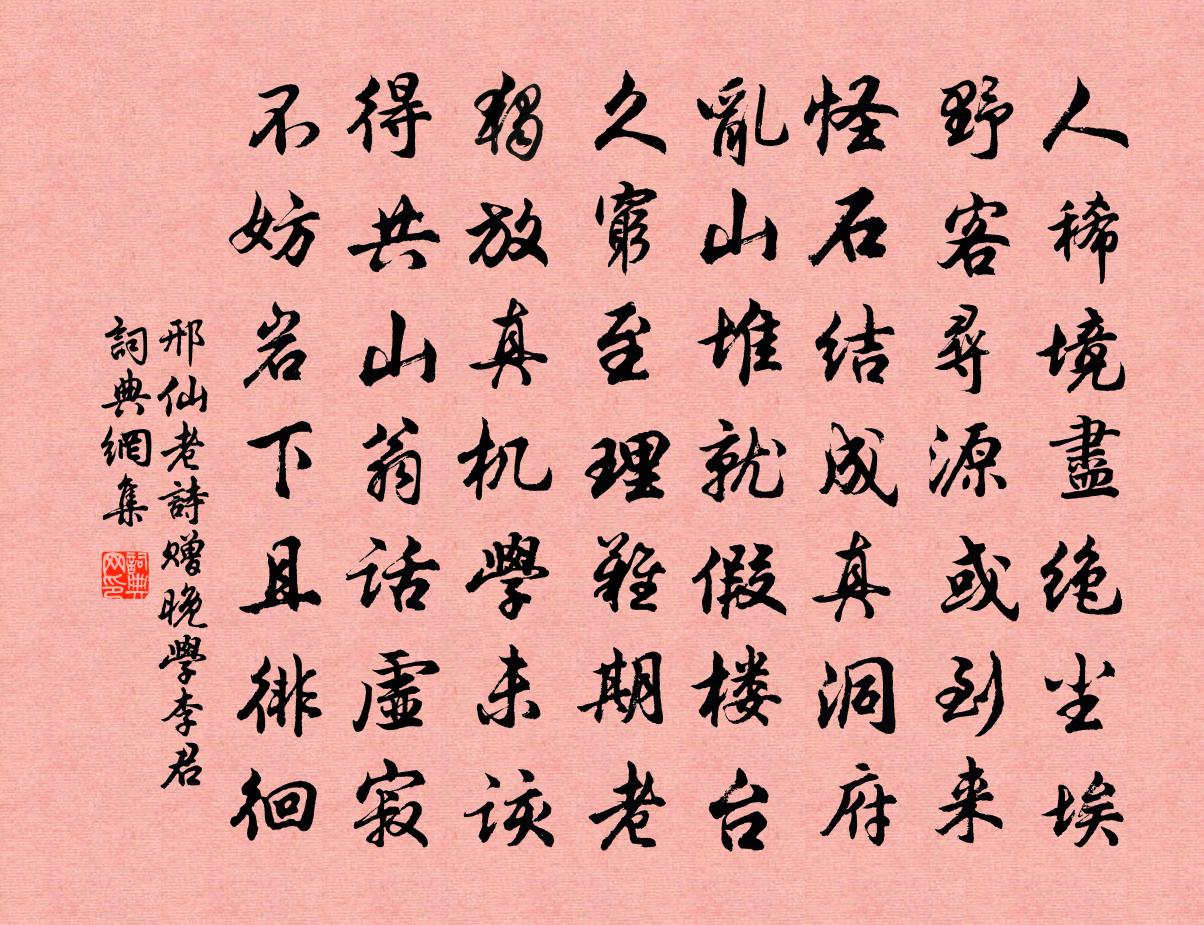 人稀境盡絶尘埃
野客尋源或到来
怪石结成真洞府
亂山堆就假楼台
久窮至理难期老
獨放真机學未该
得共山翁话虚寂
不妨岩下且徘徊
邢仙老詩赠晚學李君
詞典網集
詞典网印